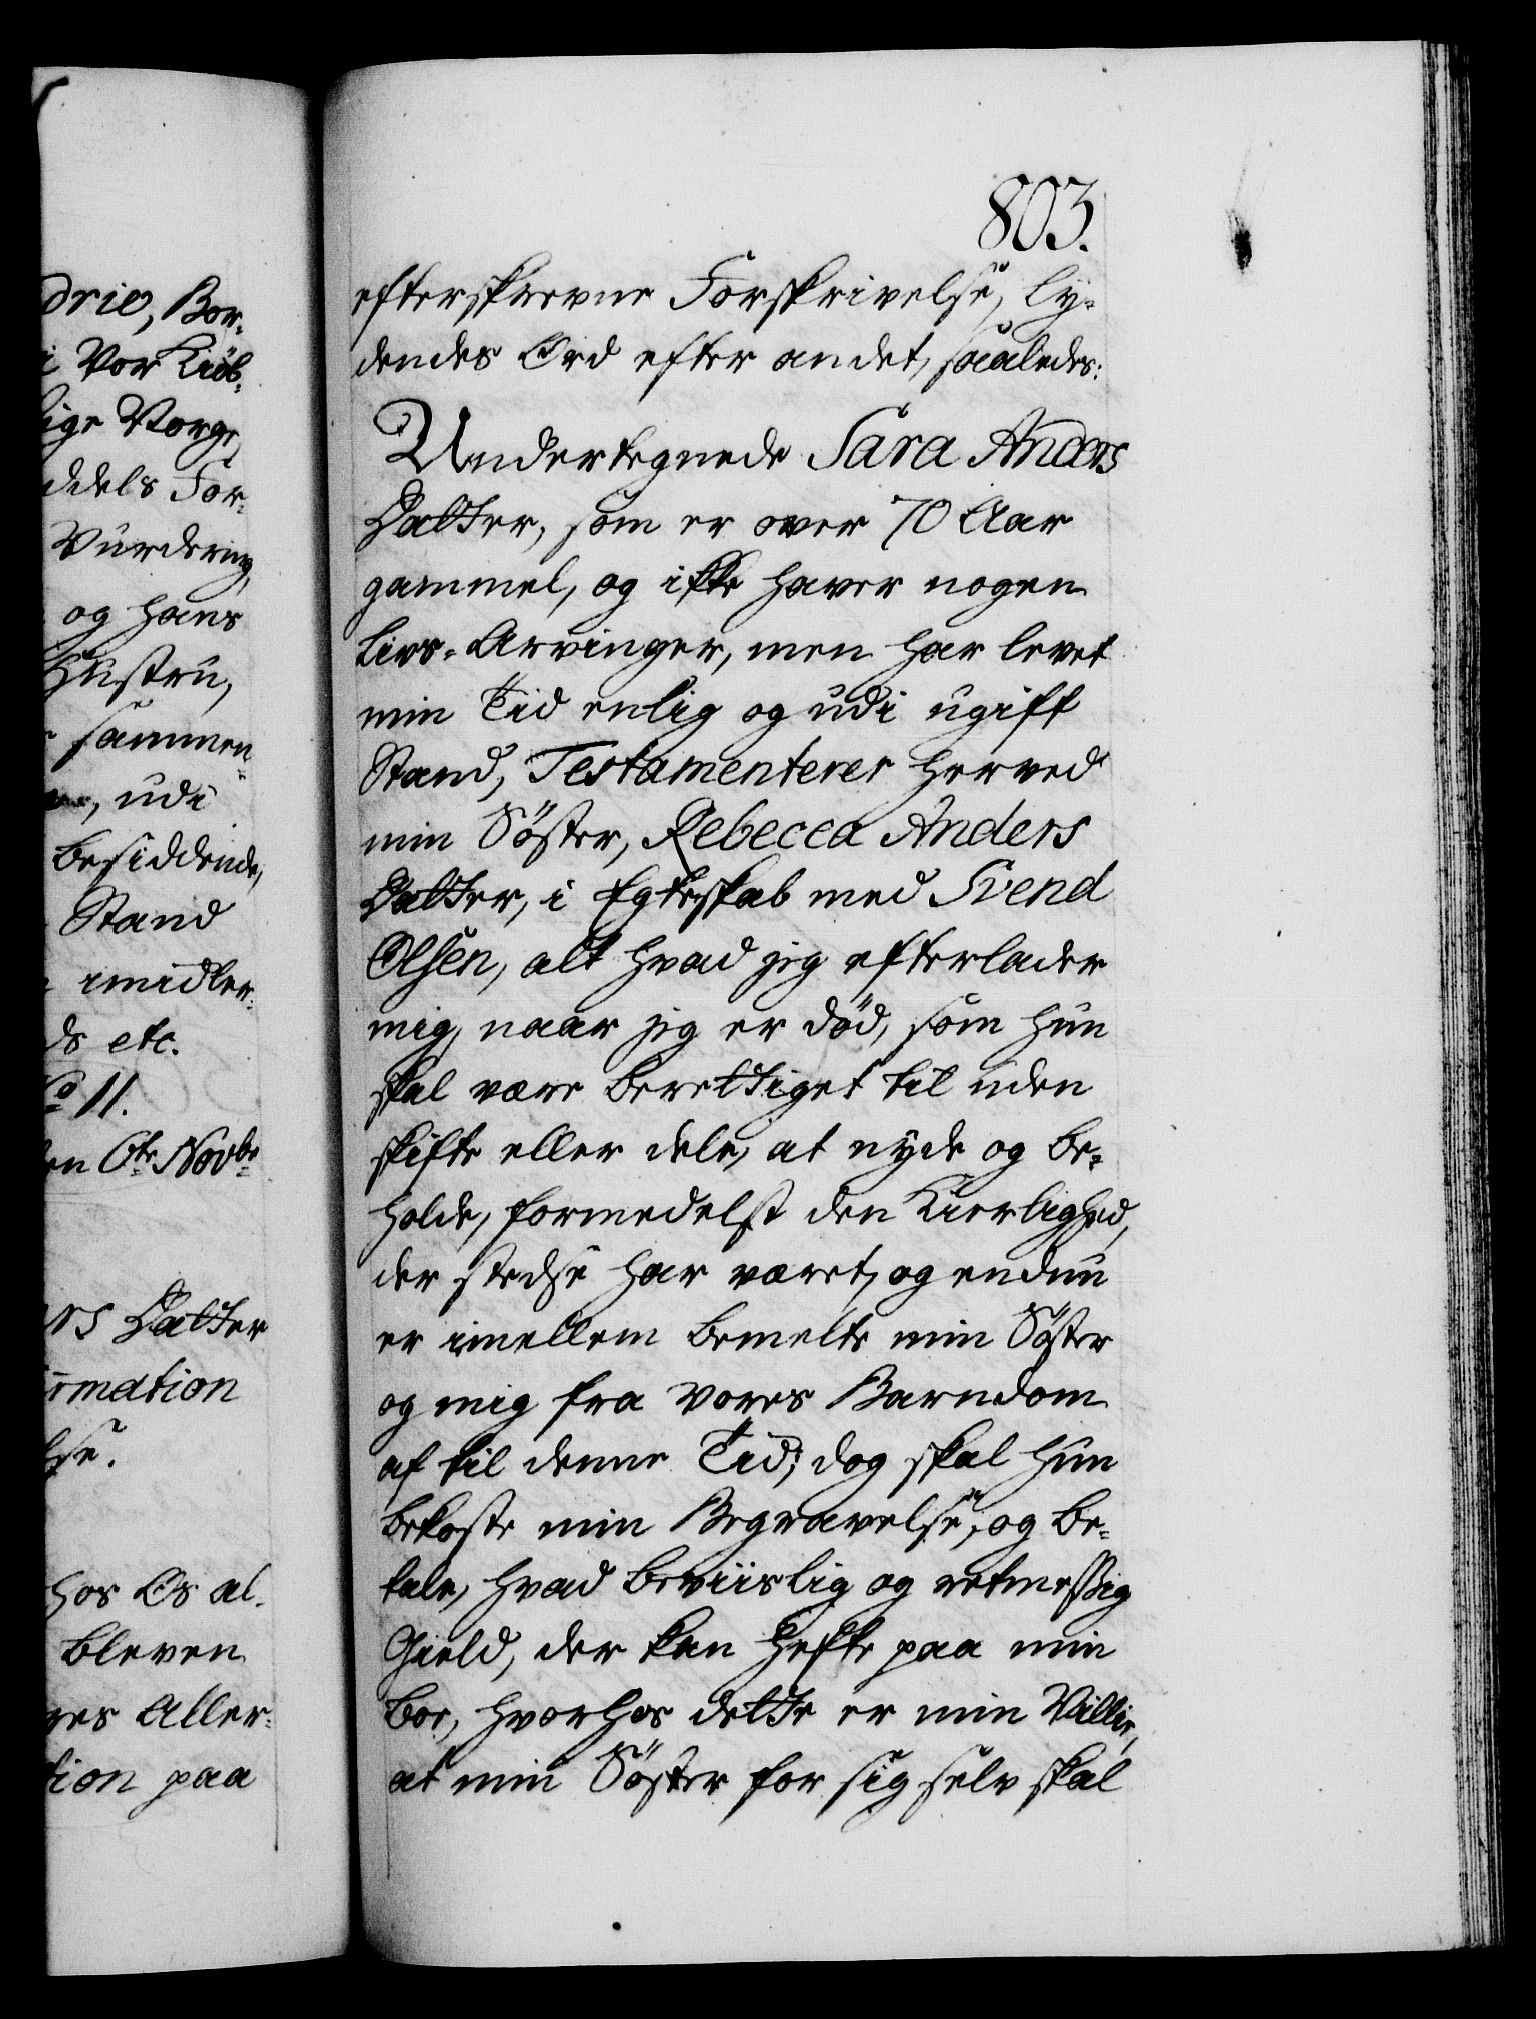 drie, Bor-
i Vor Kiöb-
lige Norge,
ddels For-
Vurdering,
og hans
Hustru,
sammen-
udi
besiddende,
Stand
imidler-
ds etc.
No 11.
en 6te Novbr
rs Datter
irmation
lse.
hos Os al-
bleven
res Aller-
tion paa
803.
efterskrevne Forskrivelse, ly-
dendes Ord efter andet, saaledes:
Undertegnede Sara Anders
Datter, som er over 70 Aar
gammel, og ikke haver nogen
Livs-Arvinger, men har levet
min Tid enlig og udi ugift
Stand, Testamenterer herved
min Söster, Rebecca Anders
Datter, i Egteskab med Svend
Olsen, alt hvad jeg efterlader
mig, naar jeg er död, som hun
skal være berettiget til uden
skifte eller dele, at nyde og be-
holde, formedelst den Kierlighed,
der stedse har været, og endnu
er imellem bemelte min Söster
og mig fra vores Barndom
af til denne Tid; dog skal hun
bekoste min Begravelse, og be-
tale, hvad beviislig og retmessig
Gield, der kan hefte paa min
Boe, hvorhos dette er min Villie,
at min Söster for sig selv skal